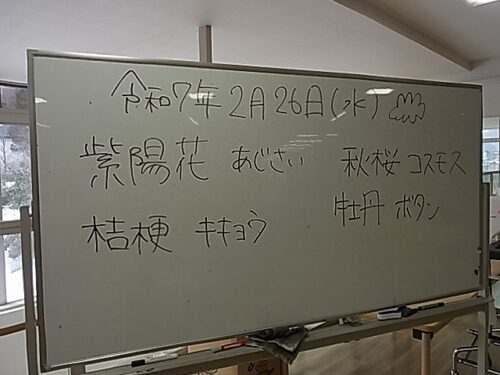 令和7年2月26日(水)
紫陽花 あじさい 秋桜 コスモス
桔梗 キキョウ 牡丹 ボタン